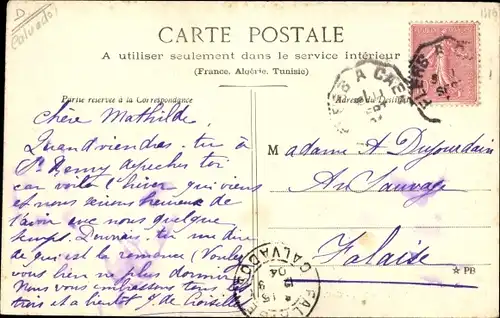 D
Calvados
CARTE POSTALE
A utiliser seulement dans le service intérieur
(France, Algérie, Tunisie)
Partie réservée à la Correspondance
Adresse du
FLERS A CAEN
Chère Mathilde,
Quand viendras-tu à
St Remy dépêches toi
car voilà l'hiver qui vient
et nous serions heureux de
t'avoir avec nous quelque
temps.
de qui est la romance (Voulez
vous bien ne plus dormir)
Nous vous embrassons tous
trois et à bientôt J. de Croisille
M adame A Dujourdain
Au Sauvage
Falaise
CALVADOS
04
☆ PB